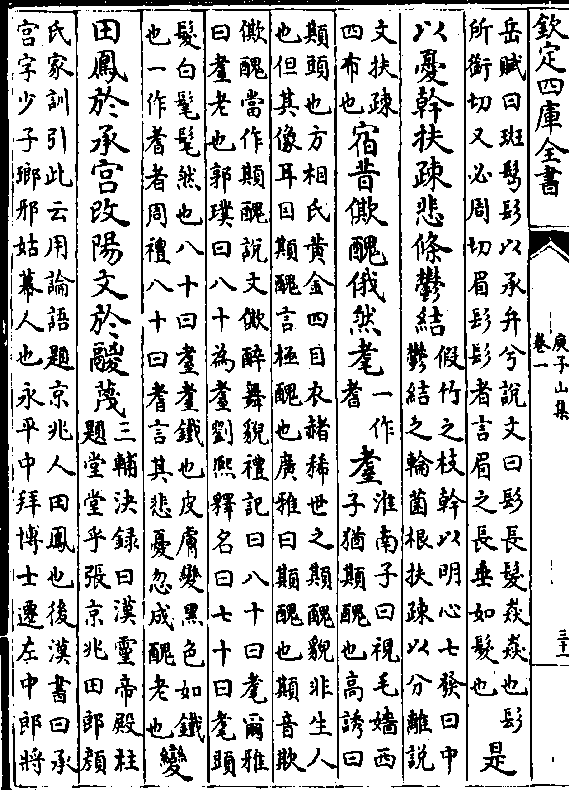 欽定四庫全書
庾子山集
卷一
三十一
岳賦曰班鬂髟以承弁兮說文曰髟長髮猋猋也髟
所銜切又必周切眉髟髟者言眉之長垂如髮也
是
以憂幹扶疎悲條鬱結
假竹之枝幹以明心七發曰中
鬱結之輪菌根扶疎以分離說
文扶疎
四布也
宿昔僛醜俄然耄
一作
耆
耋
淮南子曰視毛嬙西
子猶䫏醜也高誘曰
䫏頭也方相氏黄金四目衣赭稀世之䫏醜貌非生人
也但其像耳目䫏醜言極醜也廣雅曰䫏醜也䫏音欺
僛醜當作䫏醜說文僛醉舞貌禮記曰八十曰耄爾雅
曰耋老也郭璞曰八十為耋劉熈釋名曰七十曰耄頭
髮白髦髦然也八十曰耋耋鐵也皮膚變黑色如鐵
也一作耆者周禮八十曰耆言其悲憂忽成醜老也
變
田鳳於承宫改陽文於鬷蔑
三輔決錄曰漢靈帝殿柱
題堂堂乎張京兆田郎顔
氏家訓引此云用論語題京兆人田鳳也後漢書曰承
宫字少子瑯邪姑幕人也永平中拜博士遷左中郎將